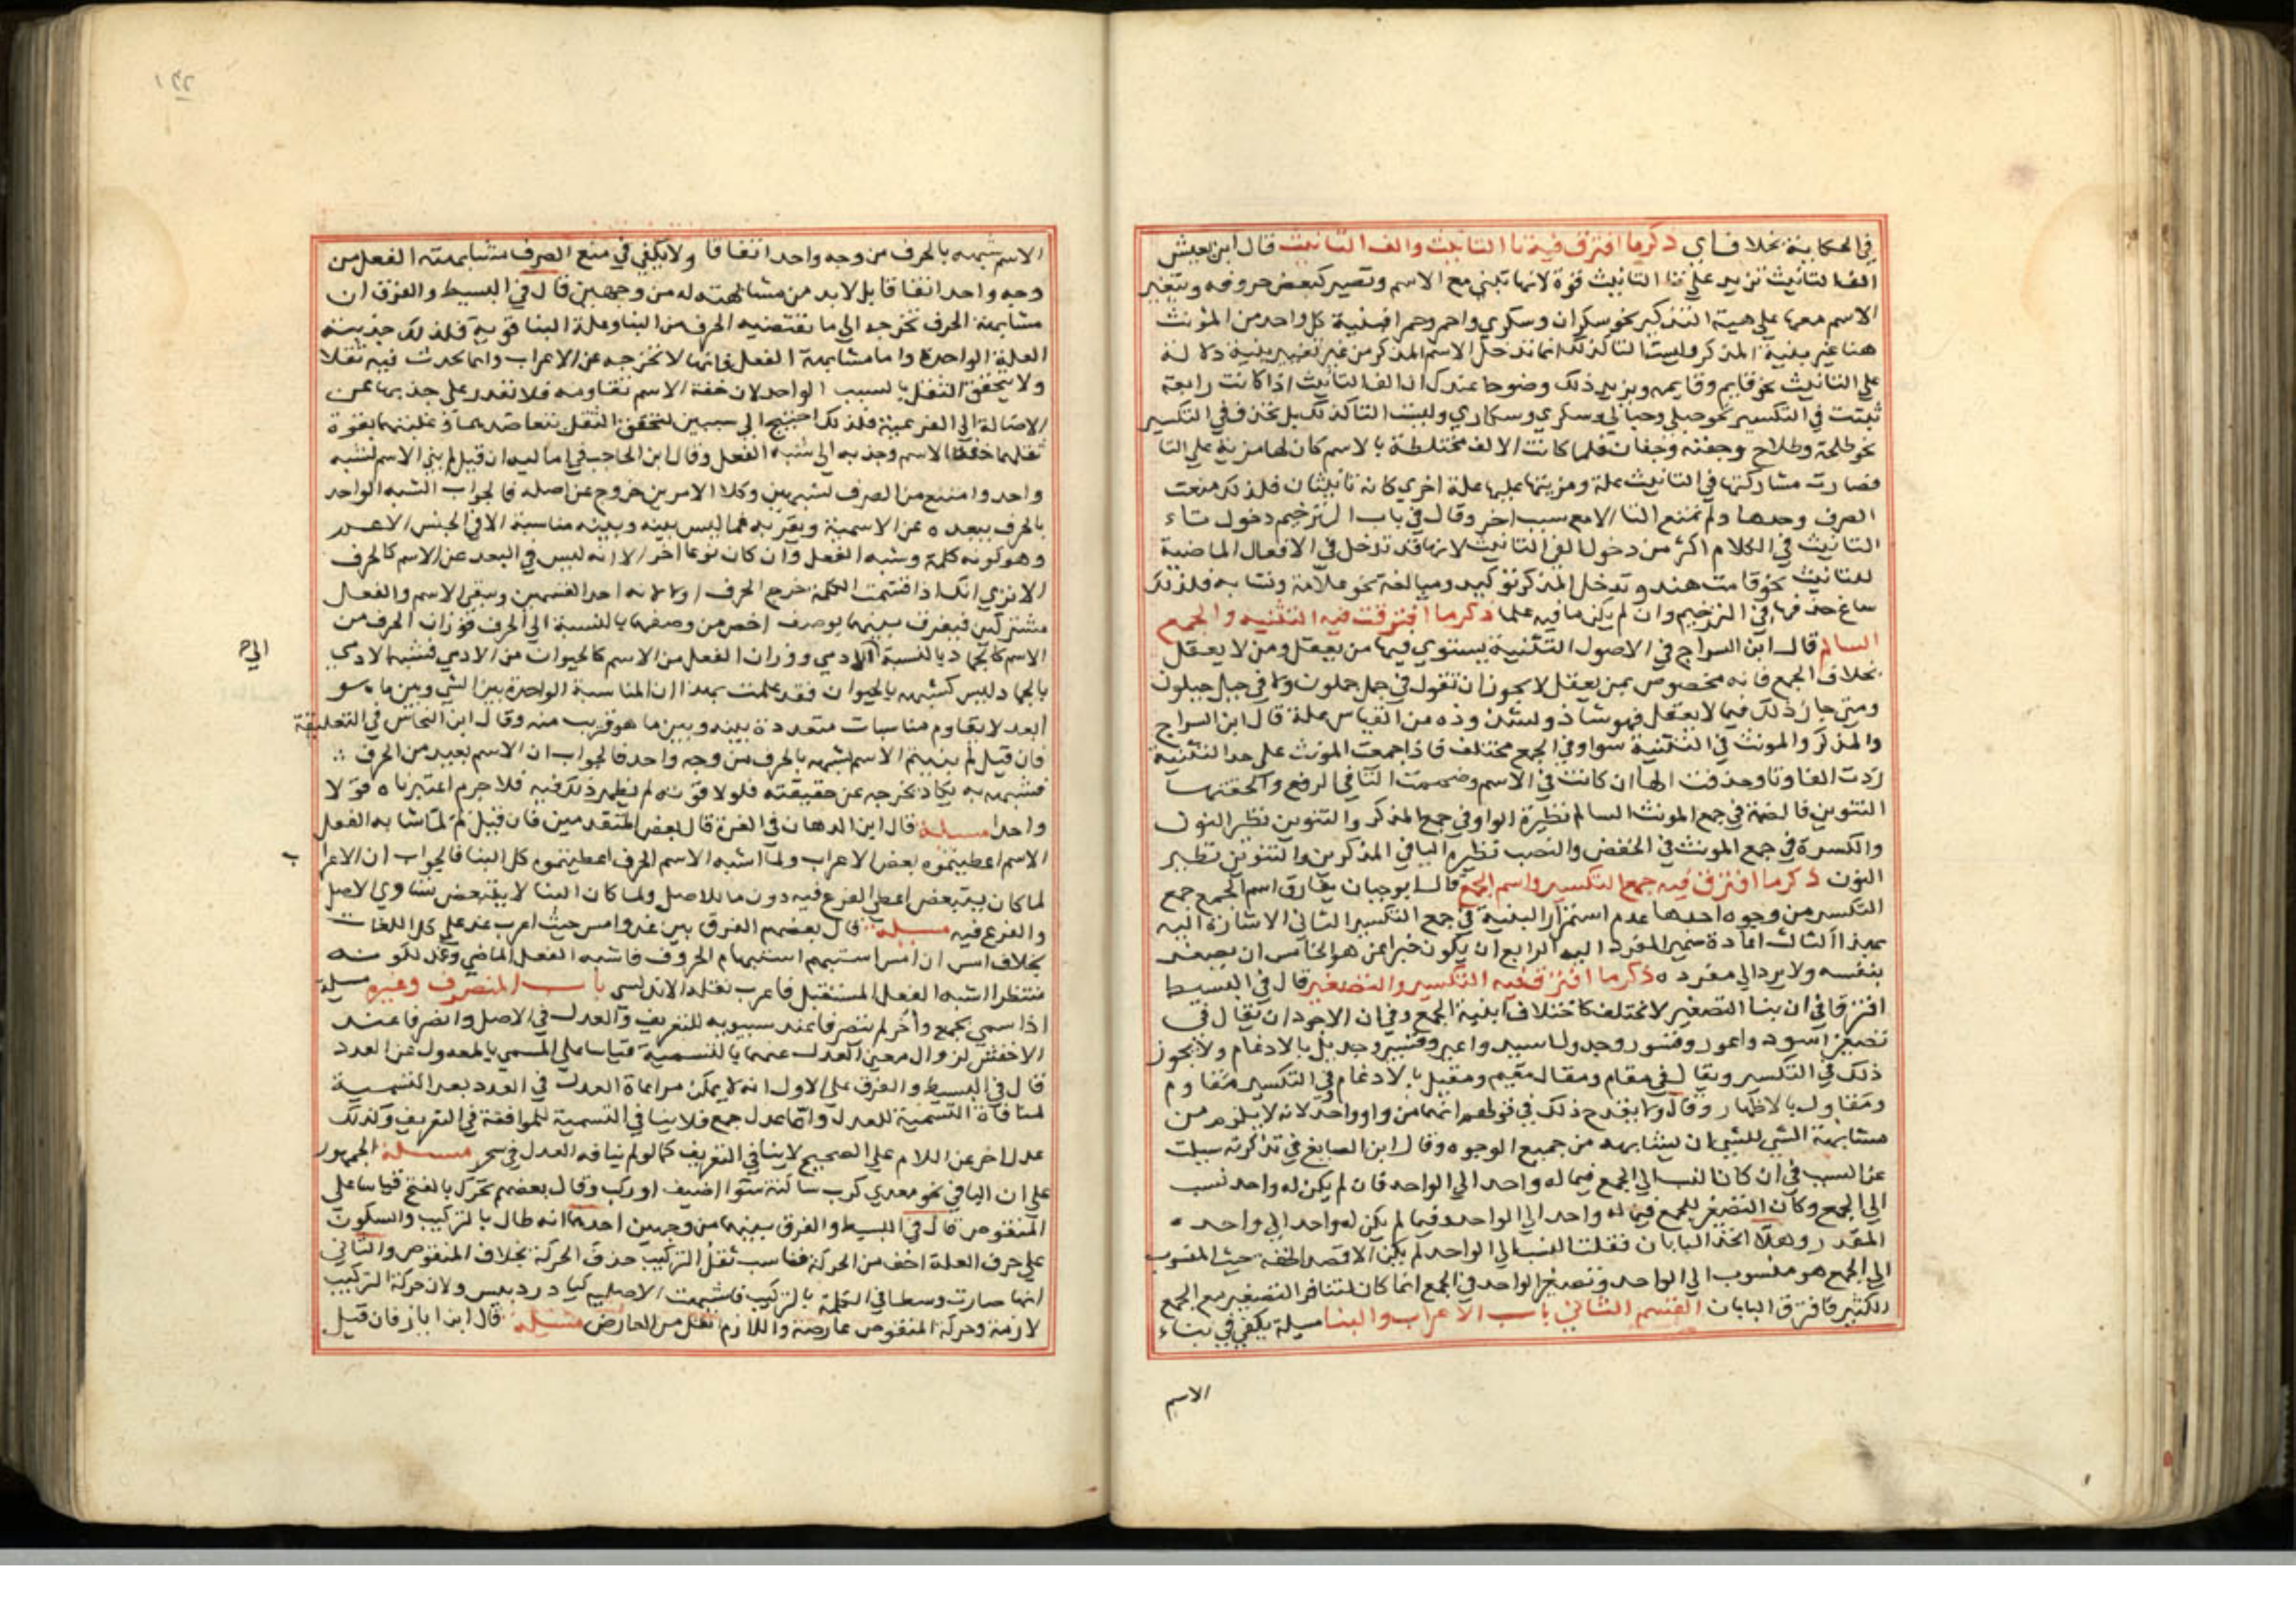 في الحكاية بخلاف اي ذكر ما افترق فيه تا التانيث والف التانيث قال ابن يعيش
الف التانيث تزيد على تا التانيث قوة لانها تبني مع الاسم وتصير كبعض حروفه ويتغير
الاسم معها على هيئة التذكير نحو سكران وسكري واحمر وحمرا فبنية كل واحد من المونث
هنا غير بنية المذكر وليست التا كذلك انما تدخل الاسم المذكر من غير تغيير بنيته دلالة
على التانيث نحو قايم وقايمه ويزيد ذلك وضوحا عندك ان الف التانيث اذا كانت رابعة
ثبتت في التكسير نحو حبلي وحبالي وسكري وسكاري وليست التا كذلك بل تحذف في التكسير
نحو طلحة وطلاح وجفنه وجفان فلما كانت الالف مختلطة بالاسم كان لها مزية على التا
فصارت مشاركتها في التانيث علة ومزيتها عليها علة اخري كانه تانيثان فلذلك منعت
الصرف وحدها ولم تمنع التا الا مع سبب اخر وقال في باب الترخيم دخول تاء
التانيث في الكلام اكثر من دخول الف التانيث لانها قد تدخل في الافعال الماضية
للتانيث نحو قامت هند وتدخل المذكر توكيد ومبالغة نحو علامة ونسابه فلذلك
ساغ حذفها في الترخيم وان لم يكن ما فيه علما ذكر ما افترقت فيه التثنيه والجمع
السالم قال ابن السراج في الاصول التثنية يستوي فيها من يعقل ومن لا يعقل
بخلاف الجمع فانه مخصوص بمن يعقل لا يجوز ان تقول في جمل جملون ولا في جبل جبلون
ومتى جا ذلك فيما لا يعقل فهو شاذ ولشذوذه من القياس علة قال ابن السراج
والمذكر والمونث في التثنية سوا وفي الجمع مختلف فاذا جمعت المونث على حد التثنية
زدت الفا وتا وحذفت الها ان كانت في الاسم وضممت التا في الرفع والحقتها
التنوين فالضمة في جمع المونث السالم نظيرة الواو في جمع المذكر والتنوين نظير النون
والكسرة في جمع المونث في الخفض والنصب نظيره اليا في المذكرين والتنوين نظير
النون ذكر ما افترق فيه جمع التكسير واسم الجمع قال ابو حيان يفارق اسم الجمع جمع
التكسير من وجوه احدها عدم استمرار البنية في جمع التكسير الثاني الاشارة اليه
بهذا الثالث اعادة ضمير المفرد اليه الرابع ان يكون خبرا عن هو الخامس ان يصغر
بنفسه ولا يرد الى مفرده ذكر ما افترق فيه التكسير والتصغير قال في البسيط
افترقا في ان بنا التصغير لا تختلف كاختلاف ابنية الجمع وفي ان الاجود ان يقال في
تصغير اسود واعور وقسور وجدول اسيد واعير وقسير وجديل بالادغام ولا يجوز
ذلك في التكسير ويقال في مقام ومقال مقيم ومقيل بالادغام وفي التكسير مقاوم
ومقاول بالاظهار وقال ولا يقدح ذلك في قولهم انهما من واد واحد لانه لا يلزم من
مشابهة الشي للشي ان يشابهه من جميع الوجوه وقال ابن الصايغ في تذكرته سيلت
عن السبب في ان كان النسب الى الجمع فيما له واحد الى الواحد فان لم يكن له واحد نسب
الى الجمع وكان التصغير للجمع فيما له واحد الى الواحد وفيما لم يكن له واحد الى واحده
المقدر وهلا اتخذ البابان فقلت النسب الى الواحد لم يكن الا قصد الخفة حيث المنسوب
الى الجمع هو منسوب الى الواحد وتصغير الواحد في الجمع انما كان لتنافر التصغير مع الجمع
الكثير فافترق البابان القسم الثاني باب الاعراب والبنا مسيلة يكفي في بناء
الاسم
الاسم شبهه بالحرف من وجه واحد اتفاقا ولا يكفي في منع الصرف مشابهته الفعل من
وجه واحد اتفاقا بل لا بد من مشابهته له من وجهين قال في البسيط والفرق ان
مشابهة الحرف تخرجه الى ما يقتضيه الحرف من البنا وعلة البنا قوية فلذلك جذبته
العلة الواحدة واما مشابهة الفعل فانها لا تخرجه عن الاعراب وانما تحدث فيه ثقلا
ولا يتحقق الثقل بالسبب الواحد لان خفة الاسم تقاومه فلا تقدر على جذبها عن
الاصالة الى الفرعية فلذلك احتيج الى سببين لتحقق الثقل بتعاضدهما وغلبتهما بقوة
ثقلهما خفة الاسم وجذبه الى شبه الفعل وقال ابن الحاجب في اماليه ان قيل لم بني الاسم لشبه
واحد وامتنع من الصرف لشبهين وكلا الامرين خروج عن اصله فالجواب الشبه الواحد
بالحرف يبعده عن الاسمية ويقربه مما ليس بينه وبينه مناسبة الا في الجنس الاعم
وهو كونه كلمة وشبه الفعل وان كان نوعا اخر الا انه ليس في البعد عن الاسم كالحرف
الا تري انك اذا قسمت الكلمة خرج الحرف اولا لانه احد القسمين ويبقى الاسم والفعل
مشتركين فيفرق بينهما بوصف اخص من وصفهما بالنسبة الى الحرف فوزان الحرف من
الاسم كالجماد بالنسبة الى الادمي ووزان الفعل من الاسم كالحيوان من الادمي فشبه الادمي
الى
بالجماد ليس كشبهه بالحيوان فقد علمت بهذا ان المناسبة الواحدة بين الشي وبين ما هو
ابعد لا تقاوم مناسبات متعددة بينه وبين ما هو قريب منه وقال ابن النحاس في التعليقة
فان قيل لم بنيتم الاسم لشبهه بالحرف من وجه واحد فالجواب ان الاسم بعيد من الحرف
فشبهه به يكاد يخرجه عن حقيقته فلولا قوته لم يظهر ذلك فيه فلا جرم اعتبرناه قولا
واحدا مسيلة قال ابن الدهان في الغرة قال بعض المتقدمين فان قيل لم لما شابه الفعل
الاسم اعطيتموه بعض الاعراب ولما اشبه الاسم الحرف اعطيتموه كل البنا فالجواب ان الاعراب
لما كان يتبعض اعطي الفرع فيه دون ما للاصل ولما كان البنا لا يتبعض تساوي الاصل
والفرع فيه مسيلة قال بعضهم الفرق بين غد وامس حيث اعرب غد على كل اللغات
بخلاف امس ان امس استبهم استبهام الحروف فاشبه الفعل الماضي وغد لكونه
منتظرا اشبه الفعل المستقبل فاعرب نقله الاندلسي باب المنصرف وغيره مسيلة
اذا سمي بجمع واخر لم ينصرفا عند سيبويه للتعريف والعدل في الاصل وانصرفا عند
الاخفش لزوال معنى العدل عنهما بالتسمية قياسا على المسمي بالمعدول عن العدد
قال في البسيط والفرق على الاول انه لا يمكن مراعاة العدل في العدد بعد التسمية
لمنافاة التسمية للعدل واما عدل جمع فلا ينافي التسمية للموافقة في التعريف وكذلك
عدل اخر عن اللام على الصحيح لا ينافي التعريف كما لو لم ينافه العدل في سحر مسيلة الجمهور
على ان اليا في نحو معدي كرب ساكنة سوا اضيف او ركب وقال بعضهم تحرك بالفتح قياسا على
المنقوص قال في البسيط والفرق بينهما من وجهين احدهما انه طال بالتركيب والسكون
على حرف العلة اخف من الحركة فناسب ثقل التركيب حذف الحركة بخلاف المنقوص والثاني
انها صارت وسطا في الكلمة بالتركيب فاشبهت الاصلية كيا دردبيس ولان حركة التركيب
لازمة وحركة المنقوص عارضة واللازم اثقل من العارض مسيلة قال ابن اياز فان قيل